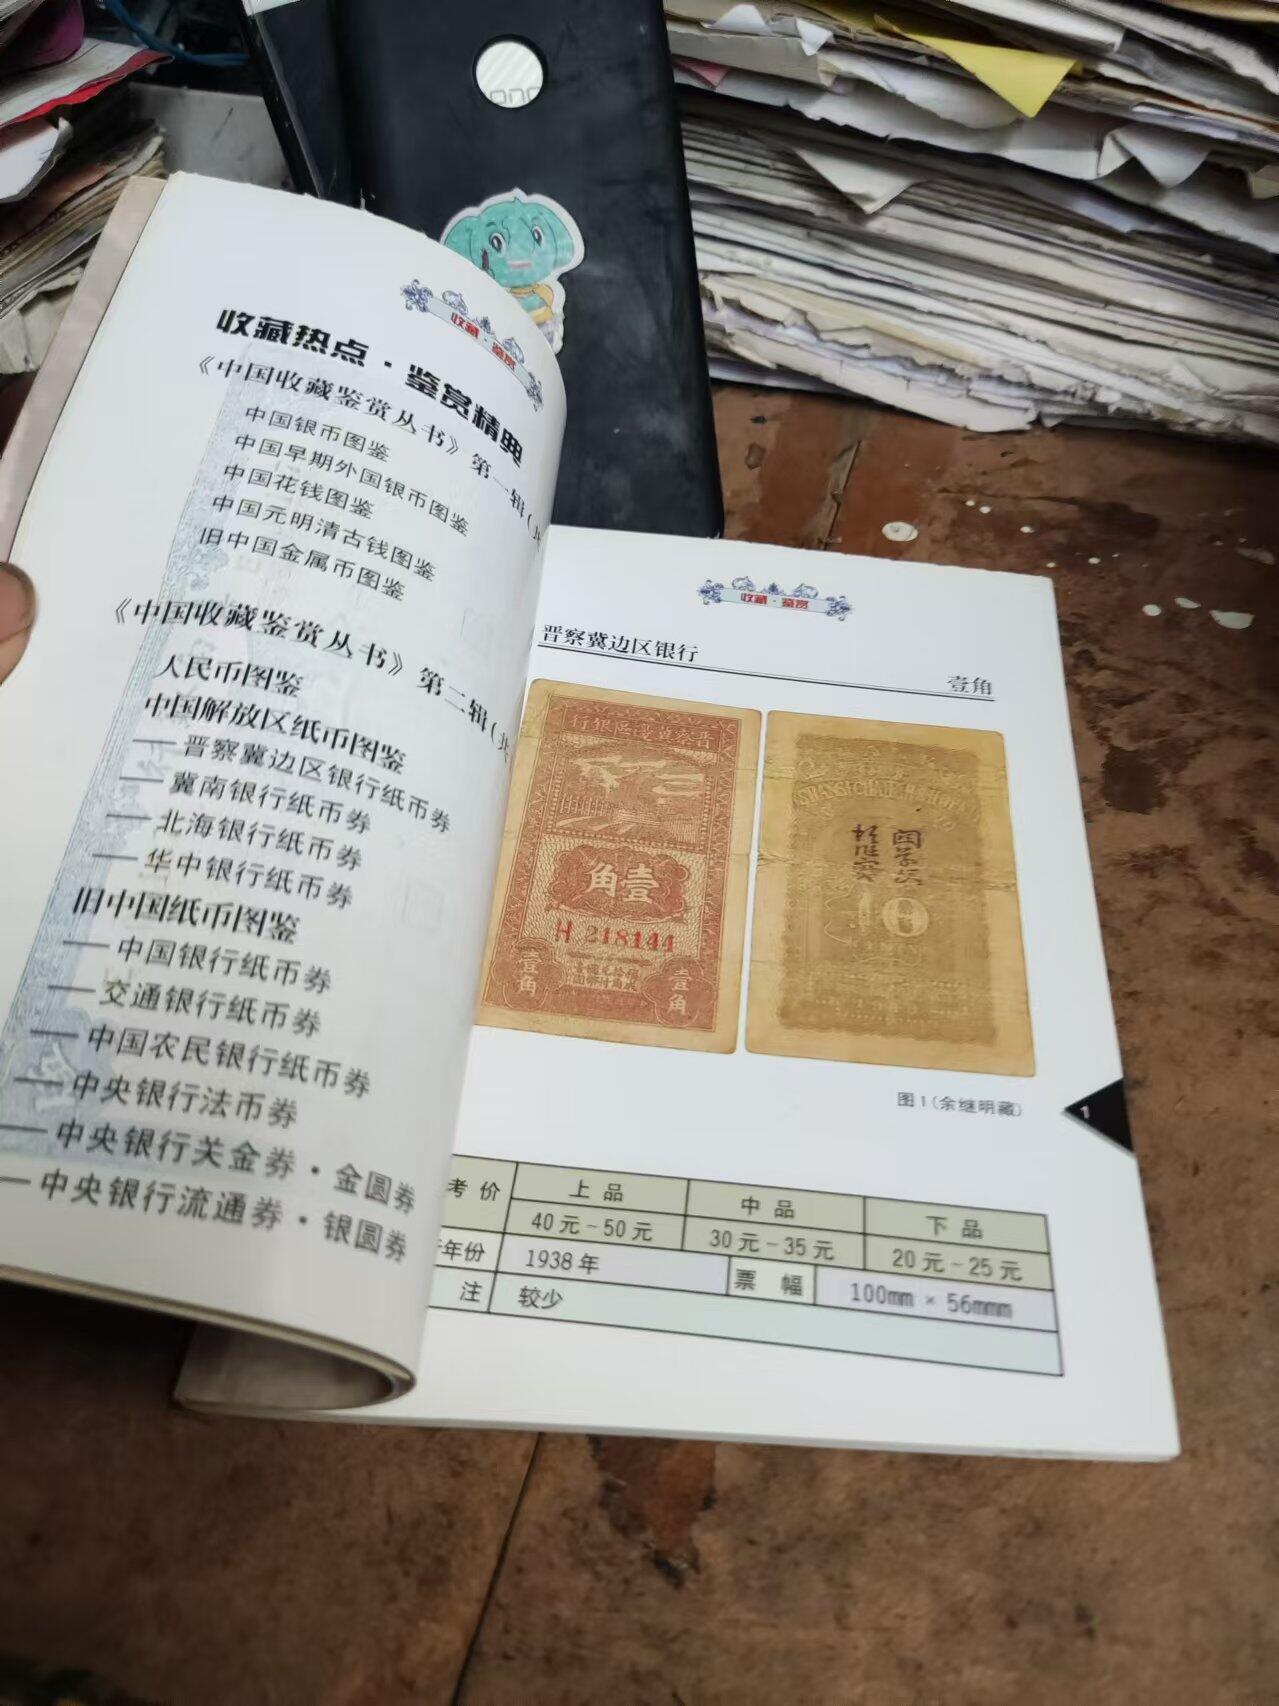 收藏·鉴赏
收藏热点·鉴赏精典
《中国收藏鉴赏丛书》第一辑(共
中国银币图鉴
中国早期外国银币图鉴
中国花钱图鉴
中国元明清古钱图鉴
旧中国金属币图鉴
《中国收藏鉴赏丛书》第二辑(共
人民币图鉴
中国解放区纸币图鉴
——晋察冀边区银行纸币券
——冀南银行纸币券
——北海银行纸币券
——华中银行纸币券
旧中国纸币图鉴
——中国银行纸币券
——交通银行纸币券
——中国农民银行纸币券
——中央银行法币券
——中央银行关金券·金圆券
——中央银行流通券·银圆券
收藏·鉴赏
晋察冀边区银行
壹角
行銀區邊冀察晋
角壹
H 218144
壹角
壹角
10
图1(余继明藏)
1
考价 上品 中品 下品
40元～50元 30元～35元 20元～25元
年份 1938年 票幅 100mm × 56mmm
注 较少